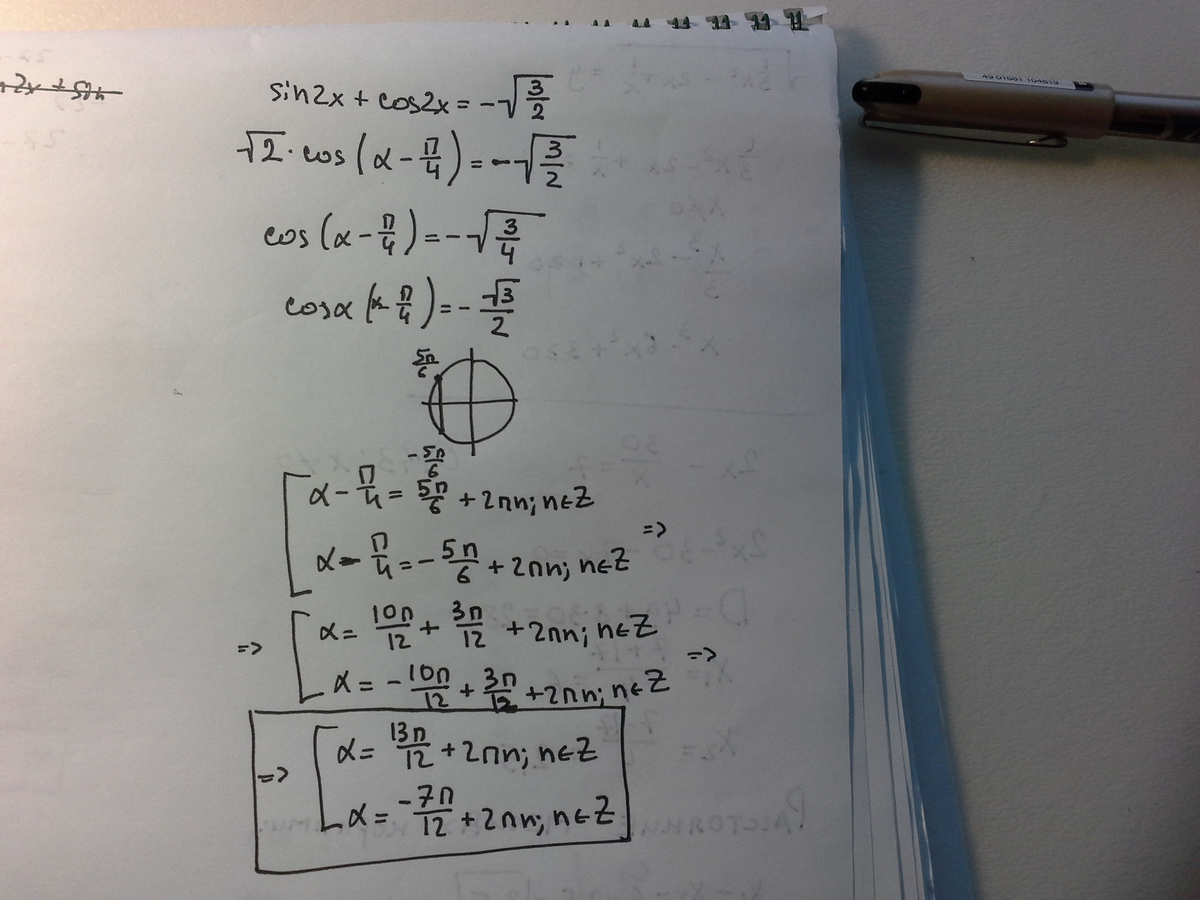 sin2x + cos2x = -√(3/2)
√2 · cos(α - π/4) = -√(3/2)
cos(α - π/4) = -√(3/4)
cosα(α - π/4) = -√3/2
5π/6
-5π/6
α - π/4 = 5π/6 + 2πn; n∈Z
α - π/4 = -5π/6 + 2πn; n∈Z =>
=> α = 10π/12 + 3π/12 + 2πn; n∈Z
α = -10π/12 + 3π/12 + 2πn; n∈Z =>
=> α = 13π/12 + 2πn; n∈Z
α = -7π/12 + 2πn; n∈Z